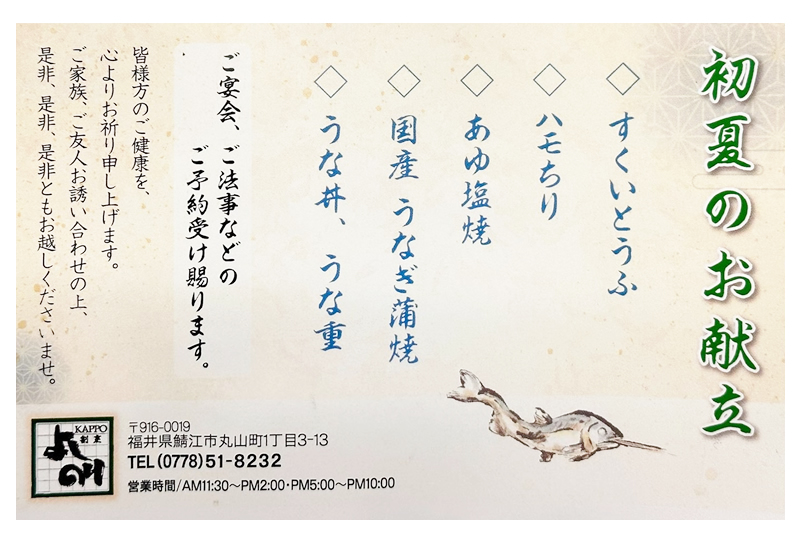 初夏のお献立
◇ すくいとうふ
◇ ハモちり
◇ あゆ塩焼
◇ 国産 うなぎ蒲焼
◇ うな丼、うな重
ご宴会、ご法事などの
ご予約受け賜ります。
皆様方のご健康を、
心よりお祈り申し上げます。
ご家族、ご友人お誘い合わせの上、
是非、是非、是非ともお越しくださいませ。
KAPPO
割烹
〒916-0019
福井県鯖江市丸山町1丁目3-13
TEL(0778)51-8232
営業時間/AM11:30〜PM2:00・PM5:00〜PM10:00